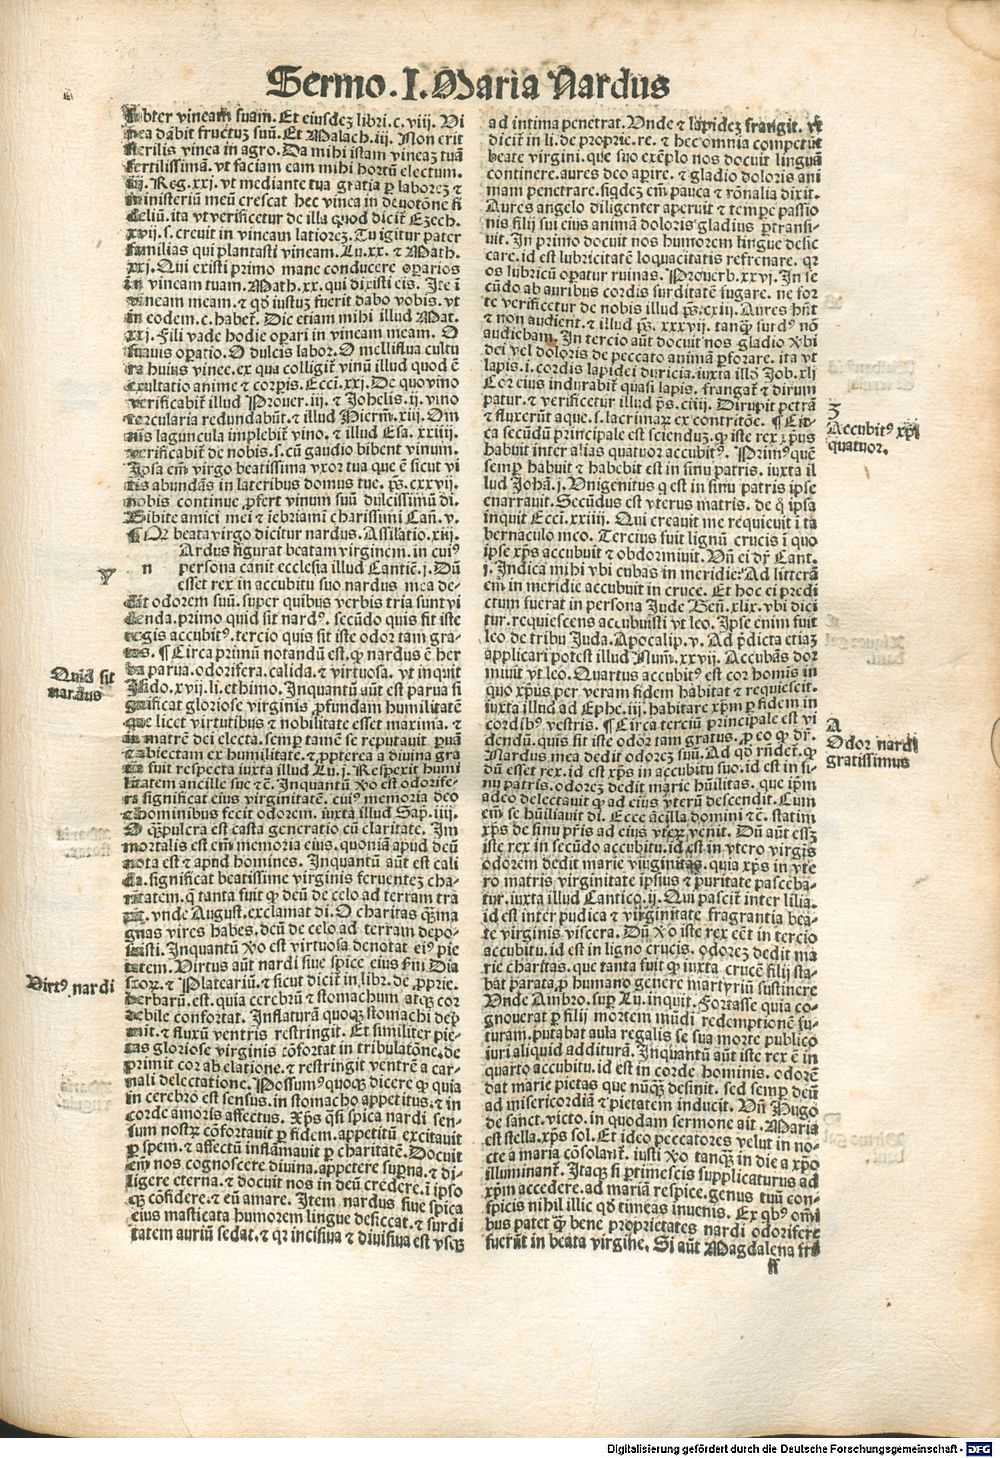 Sermo .I. Maria Nardus
vineam suam. Et eiusdeʒ libri. c. viij. Vi
nea dabit fructuʒ suū. Et Malach. iij. Non erit
sterilis vinea in agro. Da mihi istam vineaʒ tuā
fertilissimā. vt faciam eam mihi hortū electum.
iij. Reg. xxj. vt mediante tua gratia ꝑ laboreʒ ⁊
ministeriū meū crescat hec vinea in deuotōne fi
deliū. ita vt verificetur de illa quod dicit᷑ Eʒech.
xvij. s. creuit in vineam latioreʒ. Tu igitur pater
familias qui plantasti vineam. Lu. xx. ⁊ Math.
xxj. Qui existi primo mane conducere oꝑarios
in vineam tuam. Math. xx. qui dixisti eis. Ite ī
vineam meam. ⁊ qd̄ iustuʒ fuerit dabo vobis. vt
in eodem. c. habet᷑. Dic etiam mihi illud Mat.
xxj. Fili vade hodie oꝑari in vineam meam. O
suauis oꝑatio. O dulcis labor. O melliflua cultu
ra huius vinee. ex qua colligit᷑ vinū illud quod ē
exultatio anime ⁊ corpis. Ecci. xxj. De quo vino
verificabit᷑ illud Prouer. iij. ⁊ Johelis. ij. vino
torcularia redundabūt. ⁊ illud Hierm̄. xiij. Om
nis laguncula implebit᷑ vino. ⁊ illud Esa. xxiiij.
verificabit᷑ de nobis. s. cū gaudio bibent vinum.
Ipsa em̄ virgo beatissima vxor tua que ē sicut vi
tis abundās in lateribus domus tue. ps̄. cxxvij.
nobis continue ꝓfert vinum suū dulcissimū di.
Bibite amici mei ⁊ iebriamī charissimi Can̄. v.
¶ Qr beata virgo dicitur nardus. Assilatio. xiij.
n Ardus figurat beatam virginem. in cuiꝰ
persona canit ecclesia illud Cantic̄. j. Dū
esset rex in accubitu suo nardus mea de-
dit odorem suū. super quibus verbis tria sunt vi
denda. primo quid sit nardꝰ. secūdo quis fit iste
regis accubitꝰ. tercio quis sit iste odor tam gra-
tus. ¶ Circa primū notandū est. ꝙ nardus ē her
ba parua. odorifera. calida. ⁊ virtuosa. vt inquit
Isido. xvij. li. ethimo. Inquantū aūt est parua si
gnificat gloriose virginis ꝓfundam humilitatē
que licet virtutibus ⁊ nobilitate esset maxima. ⁊
in matrē dei electa. semꝑ tamē se reputauit ꝑuā
⁊ abiectam ex humilitate. ⁊ ꝓpterea a diuina gra
tia fuit respecta iuxta illud Lu. j. Respexit humi
litatem ancille sue ⁊c̄. Inquantū ꝟo est odorife-
ra significat eius virginitatē. cuiꝰ memoria deo
⁊ hominibus fecit odorem. iuxta illud Sap̄. iiij.
O qʒpulcra est casta generatio cū claritate. Im
mortalis est em̄ memoria eius. quoniā apud deū
nota est ⁊ apud homines. Inquantū aūt est cali
da. significat beatissime virginis feruenteʒ cha-
ritatem. q̄ tanta fuit ꝙ deū de celo ad terram tra
xit. vnde August. exclamat di. O charitas qʒma
gnas vires habes. deū de celo ad terram depo-
suisti. Inquantū ꝟo est virtuosa denotat eiꝰ pie
tatem. Virtus aūt nardi siue spice eius ẜm Dia
scorꝝ. ⁊ Plateariū. ⁊ sicut dicit᷑ in libr. de ꝓprie.
herbarū. est. quia cerebrū ⁊ stomachum atqʒ cor
debile confortat. Inflaturā quoqʒ stomachi depꝛ
mit. ⁊ fluxū ventris restringit. Et similiter pie-
tas gloriose virginis cōfortat in tribulatōne. de
primit cor ab elatione. ⁊ restringit ventrē a car-
nali delectatione. Possumꝰ quoqʒ dicere ꝙ quia
in cerebro est sensus. in stomacho appetitus. ⁊ in
corde amoris affectus. Xp̄s q̄si spica nardi sen-
sum nostrꝝ cōfortauit ꝑ fidem. appetitū excitauit
ꝑ spem. ⁊ affectū inflamauit ꝑ charitatē. Docuit
em̄ nos cognoscere diuina. appetere suꝑna. ⁊ di-
ligere eterna. ⁊ docuit nos in deū credere. ī ipso
qʒ cōfidere. ⁊ eū amare. Item nardus siue spica
eius masticata humorem lingue desiccat. ⁊ surdi
tatem auriū sedat. ⁊ qr incisiua ⁊ diuisiua est vsqʒ
Y
Quid sit
nardus
Virtꝰ nardi
ad intima penetrat. Vnde ⁊ lapideʒ frangit. vt
dicit᷑ in li. de proprie. re. ⁊ hec omnia competūt
beate virgini. que suo exēplo nos docuit linguā
continere. aures deo aꝑire. ⁊ gladio doloris ani
mam penetrare. siqdeʒ em̄ pauca ⁊ rōnalia dixit.
Aures angelo diligenter aperuit ⁊ temꝑe passio
nis filij sui eius animā doloris gladius ꝑtransi-
uit. In primo docuit nos humorem lingue desic
care. id est lubricitatē loquacitatis refrenare. qr
os lubricū oꝑatur ruinas. Prouerb. xxvj. In se
cūdo ab auribus cordis surditatē fugare. ne for
te verificetur de nobis illud ps̄. cxiij. Aures hn̄t
⁊ non audient. ⁊ illud ps̄. xxxvij. tanqʒ surdꝰ nō
audiebam. In tercio aūt docuit nos gladio ꝟbi
dei vel doloris de peccato animā ꝑforare. ita vt
lapis. i. cordis lapidei duricia. iuxta illd̄ Job. xlj
Cor eius indurabit᷑ quasi lapis. frangat᷑ ⁊ dirum
patur. ⁊ verificetur illud ps̄. ciiij. Dirupit petrā
⁊ fluxerūt aque. s. lacrimaꝝ ex contritōe. ¶ Cir-
ca secūdū principale est sciendūʒ. ꝙ iste rex xp̄us
habuit inter alias quatuor accubitꝰ. Primꝰ quē
semꝑ habuit ⁊ habebit est in sinu patris. iuxta il
lud Johā. j. Vnigenitus q̄ est in sinu patris ipse
enarrauit. Secūdus est vterus matris. de q̊ ipsa
inquit Ecci. xxiiij. Qui creauit me requieuit ī ta
bernaculo meo. Tercius fuit lignū crucis ī quo
ipse xp̄s accubuit ⁊ obdormiuit. Vn̄ ei dr̄ Cant.
j. Indica mihi vbi cubas in meridie: Ad litterā
em̄ in meridie accubuit in cruce. Et hoc ei predi
ctum fuerat in persona Jude Gen̄. xlix. vbi dici
tur. requiescens accubuisti vt leo. Ipse enim fuit
leo de tribu Juda. Apocalip. v. Ad p̄dicta etiaʒ
applicari potest illud Num̄. xxvij. Accubās dor
miuit vt leo. Quartus accubitꝰ est cor homis in
quo xp̄us per veram fidem habitat ⁊ requiescit.
iuxta illud ad Ephe. iij. habitare xp̄m ꝑ fidem in
cordibꝰ vestris. ¶ Circa terciū principale est vi
dendū. quis sit iste odor tam gratus. ꝓ eo ꝙ dr̄.
Nardus mea dedit odoreʒ suū. Ad qd̄ rn̄det᷑. ꝙ
dū esset rex. id est xp̄s in accubitu suo. id est in si-
nu patris. odoreʒ dedit marie hūilitas. que ip̄m
adeo delectauit ꝙ ad eius vterū descendit. Cum
em̄ se hūiliauit di. Ecce ācilla domini ⁊c̄. statim
xp̄s de sinu pr̄is ad eius vterꝝ venit. Dū aūt essʒ
iste rex in secūdo accubitu. id est in vtero virgīs
odorem dedit marie virginitas. quia xp̄s in vte
ro matris virginitate ipsius ⁊ puritate pasceba-
tur. iuxta illud Cantico. ij. Qui pascit᷑ inter lilia.
id est inter pudica ⁊ virginitate fragrantia bea-
te virginis viscera. Dū ꝟo iste rex eēt in tercio
accubitu. id est in ligno crucis. odoreʒ dedit ma
rie charitas. que tanta fuit ꝙ iuxta crucē filij sta-
bat parata. ꝓ humano genere martyriū sustinere
Vnde Ambro. suꝑ Lu. inquit. Fortasse quia co-
gnouerat ꝑ filij mortem mūdi redemptionē fu-
turam. putabat aula regalis se sua morte publico
iuri aliquid additurā. Inquantū aūt iste rex ē in
quarto accubitu. id est in corde hominis. odorē
dat marie pietas que nūqʒ desinit. sed semꝑ deū
ad misericordiā ⁊ pietatem inducit. Vn̄ Hugo
de sanct. victo. in quodam sermone ait. Maria
est stella. xp̄s sol. Et ideo peccatores velut in no-
cte a maria cōsolant᷑. iusti ꝟo tanqʒ in die a xp̄o
illuminant᷑. Itaqʒ si ꝑtimescis supplicaturus ad
xp̄m accedere. ad mariā respice. genus tuū con-
spicis nihil illic qd̄ timeas inuenis. Ex qbꝰ om̄i
bus patet ꝙ bene proprietates nardi odorifere
fuerūt in beata virgine. Si aūt Magdalena
ff
Z
Accubitꝰ xp̄i
quatuor.
A
Odor nardi
gratissimus
Digitalisierung gefördert durch die Deutsche Forschungsgemeinschaft - DFG